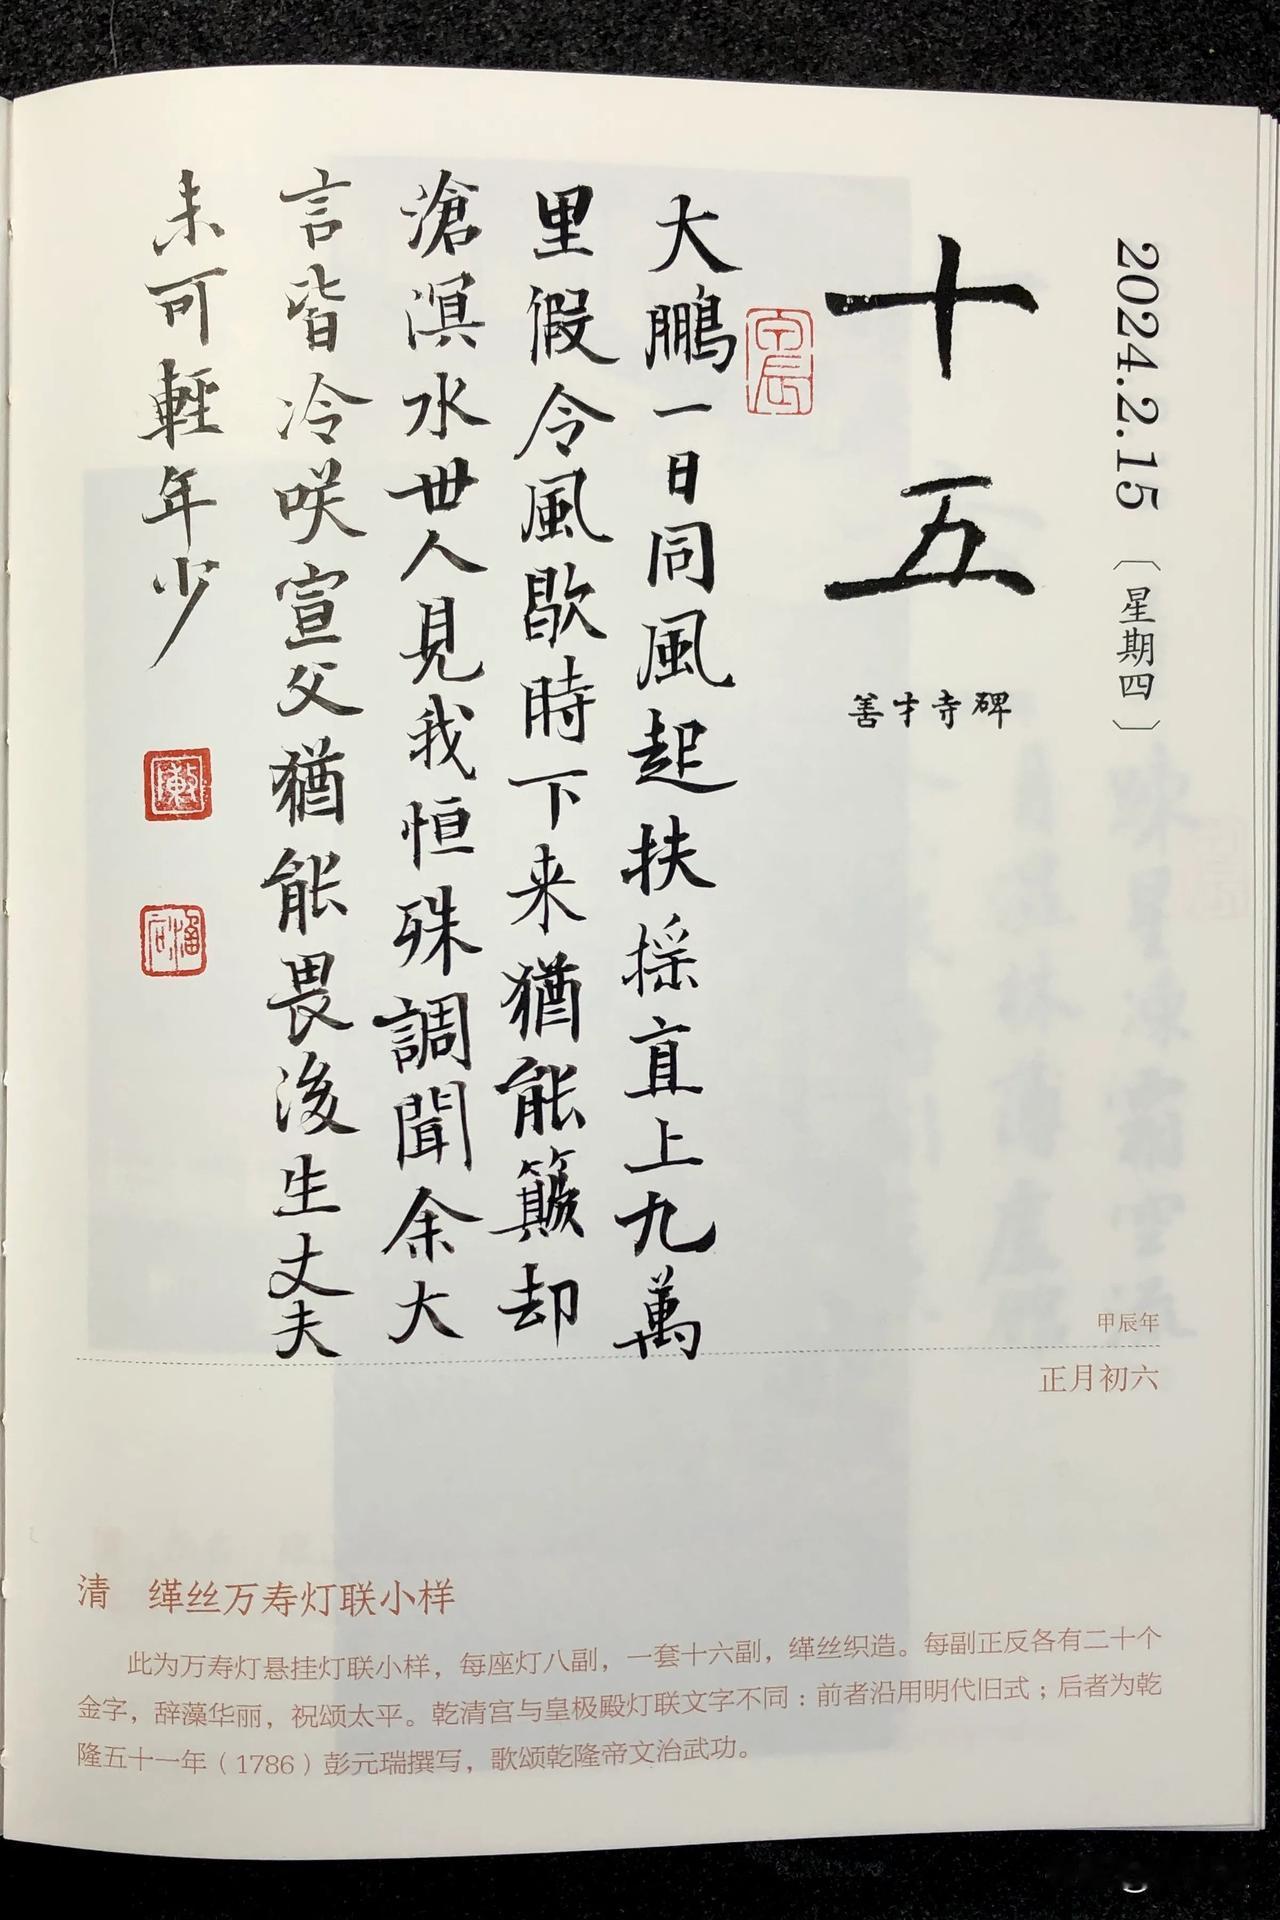 2024.2.15〔星期四〕
十五
善才寺碑
大鵬一日同風起扶摇直上九萬
里假令風歇時下来猶能簸却
滄溟水世人見我恒殊調聞余大
言皆冷咲宣父猶能畏後生丈夫
未可輕年少
甲辰年
正月初六
清 缂丝万寿灯联小样
此为万寿灯悬挂灯联小样，每座灯八副，一套十六副，缂丝织造。每副正反各有二十个
金字，辞藻华丽，祝颂太平。乾清宫与皇极殿灯联文字不同：前者沿用明代旧式；后者为乾
隆五十一年（1786）彭元瑞撰写，歌颂乾隆帝文治武功。